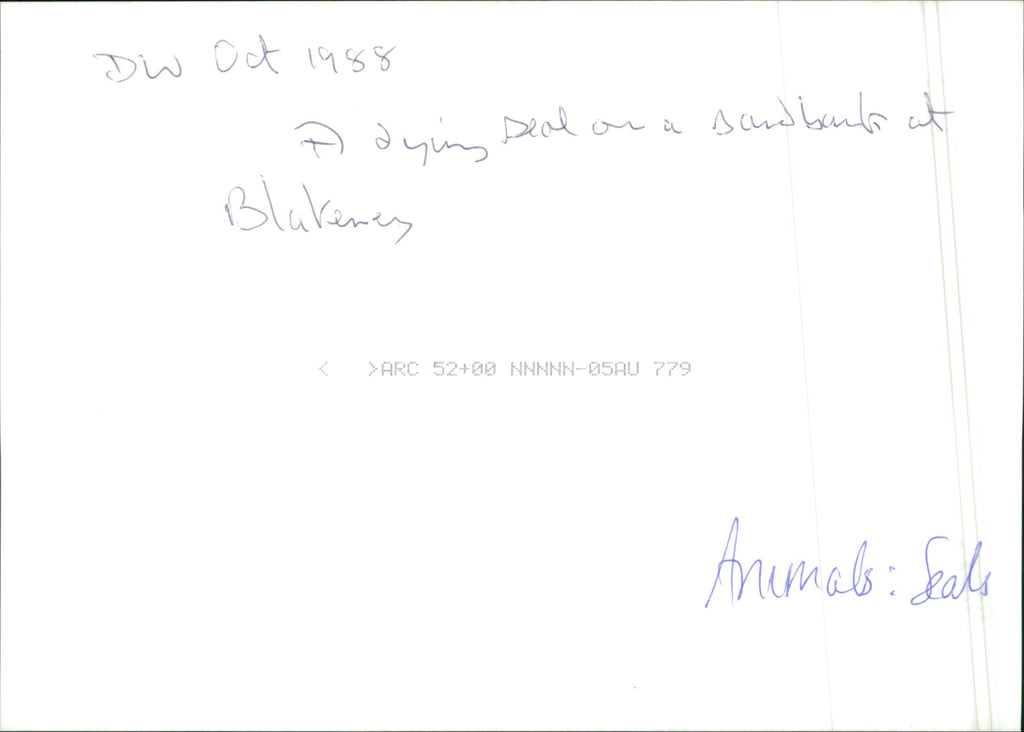 DW Oct 1988
A dying seal on a sandbank at
Blakeney
<   >ARC 52+00 NNNNN-05AU 779
Animals: Seals